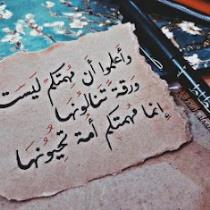 وأعلموا أن مهمتكم ليست
ورقة تنالونها
إنما مهمتكم أمة تحيونها